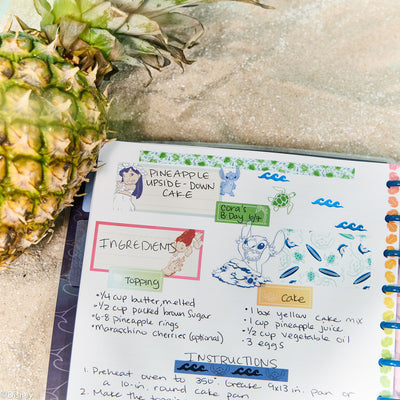 PINEAPPLE
UPSIDE-DOWN
CAKE
Cora's
B-Day 10/4
INGREDIENTS
Topping
Cake
•1/4 cup butter, melted
•1/2 cup packed brown sugar
•6-8 pineapple rings
•maraschino cherries (optional)
•1 box yellow cake mix
•1 cup pineapple juice
•1/2 cup vegetable oil
•3 eggs
INSTRUCTIONS
1. Preheat oven to 350°. Grease 9x13 in. pan or
a 10-in. round cake pan
2. Make the
©Disney